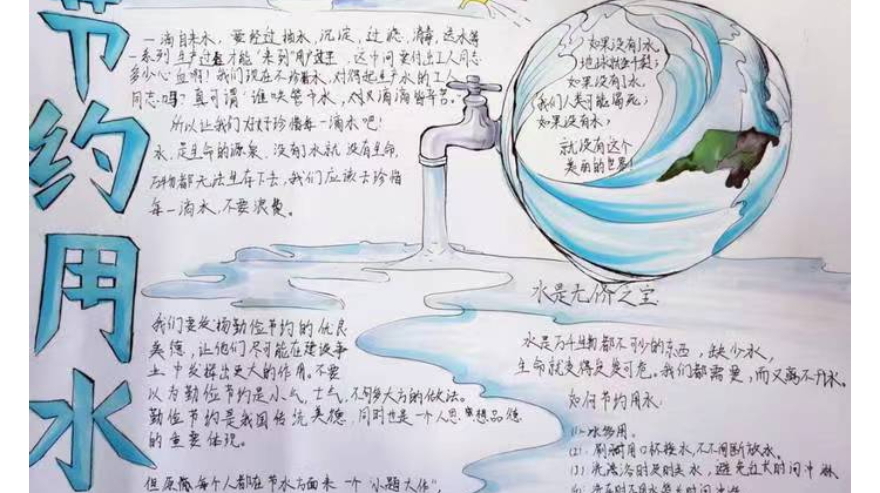 节约用水
一滴自来水，要经过抽水，沉淀，过滤，消毒，送水等
一系列生产过程才能“来到”用户这里，这中间要付出工人同志
多少心血啊！我们现在不珍惜水，对得起生产水的工人
同志吗？真可谓“谁 管中水，滴滴皆辛苦。”
所以让我们好好珍惜每一滴水吧！
水，是生命的源泉，没有了水就没有生命，
万物都无法生存下去，我们应该去珍惜
每一滴水，不要浪费。
如果没有了水，
地球就
如果没有了水，
我们人类可能渴死；
如果没有水，
就没有这个
美丽的世界！
水是无价之宝
我们要发扬勤俭节约的优良
美德，让他们尽可能在建设事
业中发挥出更大的作用。不要
以为勤俭节约是小气，士气，不够大方的做法。
勤俭节约是我国传统美德，同时也是一个人思想品德
的重要体现。
但愿 每个人都在节水方面来一个“小题大作”，
水是万千生物都不可少的东西，缺少水，
生命就变得岌岌可危。我们都需要，而又离不开水。
如何节约用水：
(1)、 多用。
(2)、刷 用口杯接水，不 间断放水。
(3)、洗澡 时 关水，避免过长时间冲淋